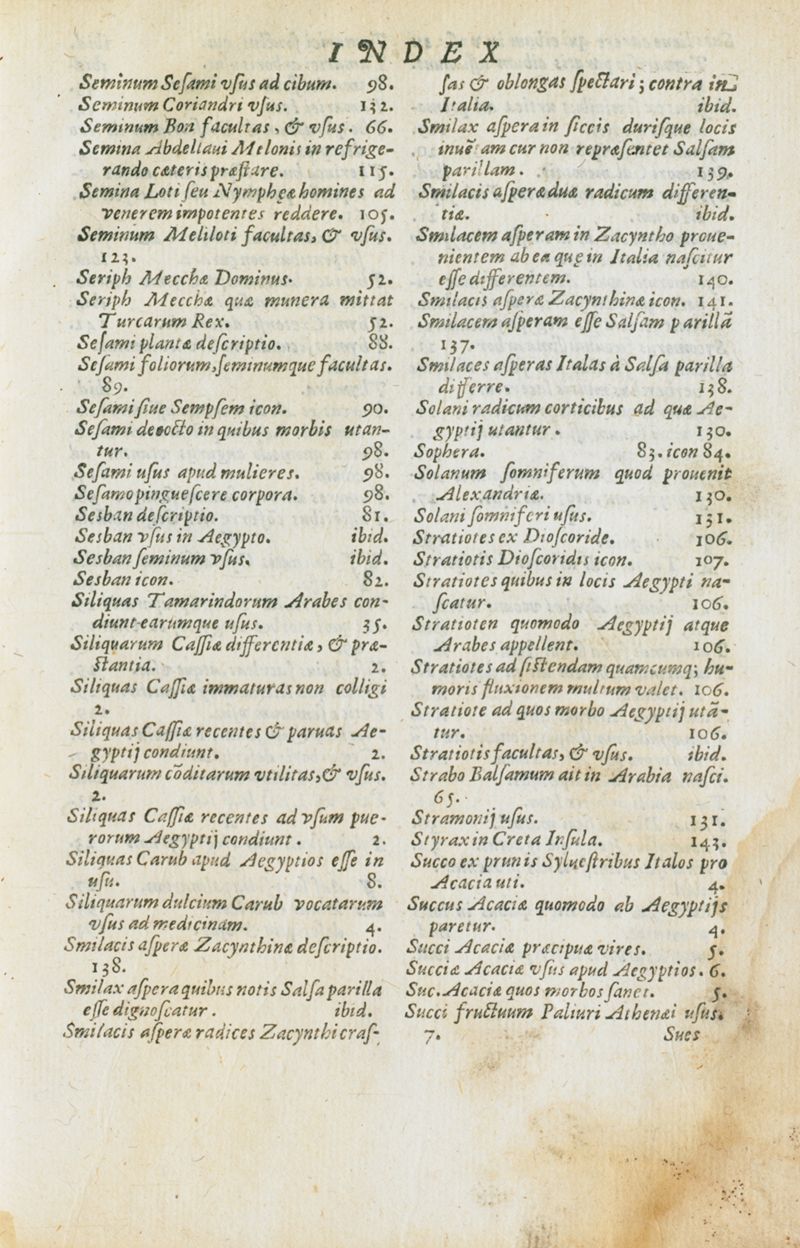 INDEX
Seminum Seſami vſus ad cibum. 98.
Seminum Coriandri vſus. 132.
Seminum Bon facultas, & vſus. 66.
Semina Abdellaui Melonis in refrige-
rando cæteris præſtare. 115.
Semina Loti ſeu Nymphęæ homines ad
venerem impotentes reddere. 105.
Seminum Meliloti facultas, & vſus.
123.
Seriph Mecchæ Dominus. 52.
Seriph Mecchæ quæ munera mittat
Turcarum Rex. 52.
Seſami plantæ deſcriptio. 88.
Seſami foliorum, ſeminumque facultas.
89.
Seſami ſiue Sempſem icon. 90.
Seſami decocto in quibus morbis utan-
tur. 98.
Seſami uſus apud mulieres. 98.
Seſamo pingueſcere corpora. 98.
Sesban deſcriptio. 81.
Sesban vſus in Aegypto. ibid.
Sesban ſeminum vſus. ibid.
Sesban icon. 82.
Siliquas Tamarindorum Arabes con-
diunt earumque uſus. 35.
Siliquarum Caſſiæ differentiæ, & præ-
ſtantia. 2.
Siliquas Caſſiæ immaturas non colligi
2.
Siliquas Caſſiæ recentes & paruas Ae-
gyptij condiunt. 2.
Siliquarum cõditarum vtilitas, & vſus.
2.
Siliquas Caſſiæ recentes ad vſum pue-
rorum Aegyptij condiunt. 2.
Siliquas Carub apud Aegyptios eſſe in
uſu. 8.
Siliquarum dulcium Carub vocatarum
vſus ad medicinam. 4.
Smilacis aſperæ Zacynthinæ deſcriptio.
138.
Smilax aſpera quibus notis Salſa parilla
eſſe dignoſcatur. ibid.
Smilacis aſperæ radices Zacynthi craſ-
ſas & oblongas ſpectari; contra in
Italia. ibid.
Smilax aſpera in ſiccis duriſque locis
inuẽtam cur non repræſentet Salſam
parillam. 139.
Smilacis aſperæ duæ radicum differen-
tiæ. ibid.
Smilacem aſperam in Zacyntho proue-
nientem ab ea quę in Italia naſcitur
eſſe differentem. 140.
Smilacis aſperæ Zacynthinæ icon. 141.
Smilacem aſperam eſſe Salſam parillã
137.
Smilaces aſperas Italas à Salſa parilla
differre. 138.
Solani radicum corticibus ad quæ Ae-
gyptij utantur. 130.
Sophera. 83. icon 84.
Solanum ſomniferum quod prouenit
Alexandriæ. 130.
Solani ſomniferi uſus. 131.
Stratiotes ex Dioſcoride. 106.
Stratiotis Dioſcoridis icon. 107.
Stratiotes quibus in locis Aegypti na-
ſcatur. 106.
Stratioten quomodo Aegyptij atque
Arabes appellent. 106.
Stratiotes ad ſiſtendam quamcumq; hu-
moris fluxionem multum valet. 106.
Stratiote ad quos morbo Aegyptij utã-
tur. 106.
Stratiotis facultas, & vſus. ibid.
Strabo Balſamum ait in Arabia naſci.
65.
Stramonij uſus. 131.
Styrax in Creta Inſula. 143.
Succo ex prunis Sylueſtribus Italos pro
Acacia uti. 4.
Succus Acaciæ quomodo ab Aegyptijs
paretur. 4.
Succi Acaciæ præcipuæ vires. 5.
Succiæ Acaciæ vſus apud Aegyptios. 6.
Suc. Acaciæ quos morbos ſanet. 5.
Succi fructuum Paliuri Athenæi uſus.
7. Sues